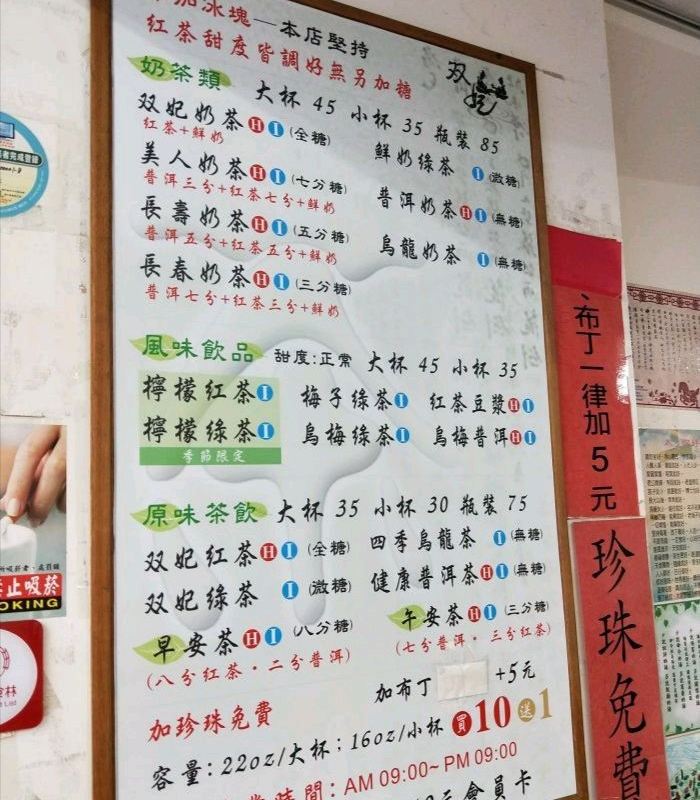 加冰塊—本店堅持
紅茶甜度皆調好無另加糖
双妃
奶茶類 大杯 45 小杯 35 瓶裝 85
双妃奶茶 H I (全糖)
紅茶+鮮奶
鮮奶綠茶 I (微糖)
美人奶茶 H I (七分糖)
普洱三分+紅茶七分+鮮奶
普洱奶茶 H I (無糖)
長壽奶茶 H I (五分糖)
普洱五分+紅茶五分+鮮奶
烏龍奶茶 I (無糖)
長春奶茶 H I (三分糖)
普洱七分+紅茶三分+鮮奶
風味飲品 甜度:正常 大杯 45 小杯 35
檸檬紅茶 I 梅子綠茶 I 紅茶豆漿 H I
檸檬綠茶 I 烏梅綠茶 I 烏梅普洱 H I
季節限定
原味茶飲 大杯 35 小杯 30 瓶裝 75
双妃紅茶 H I (全糖) 四季烏龍茶 I (無糖)
双妃綠茶 I (微糖) 健康普洱茶 H I (無糖)
早安茶 H I (八分糖) 午安茶 H I (三分糖)
(八分紅茶・二分普洱) (七分普洱・三分紅茶)
加布丁 +5元
加珍珠免費
買10送1
容量:22oz/大杯;16oz/小杯
時間:AM 09:00~ PM 09:00
會員卡
布丁一律加5元
珍珠免費
止吸菸
OKING